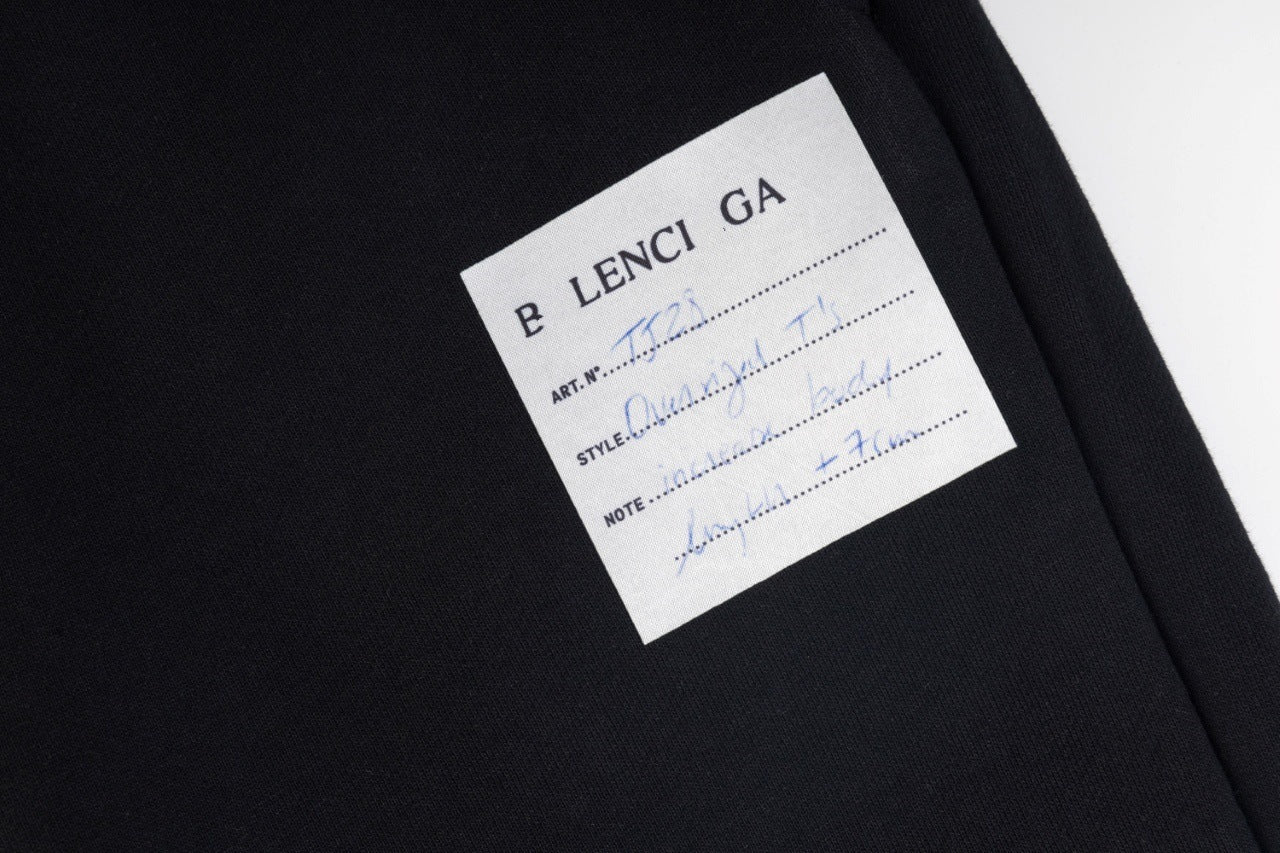 B LENCI GA
ART. Nº TJ28
STYLE Oversized T's
NOTE increase body
lenghts + 7cm